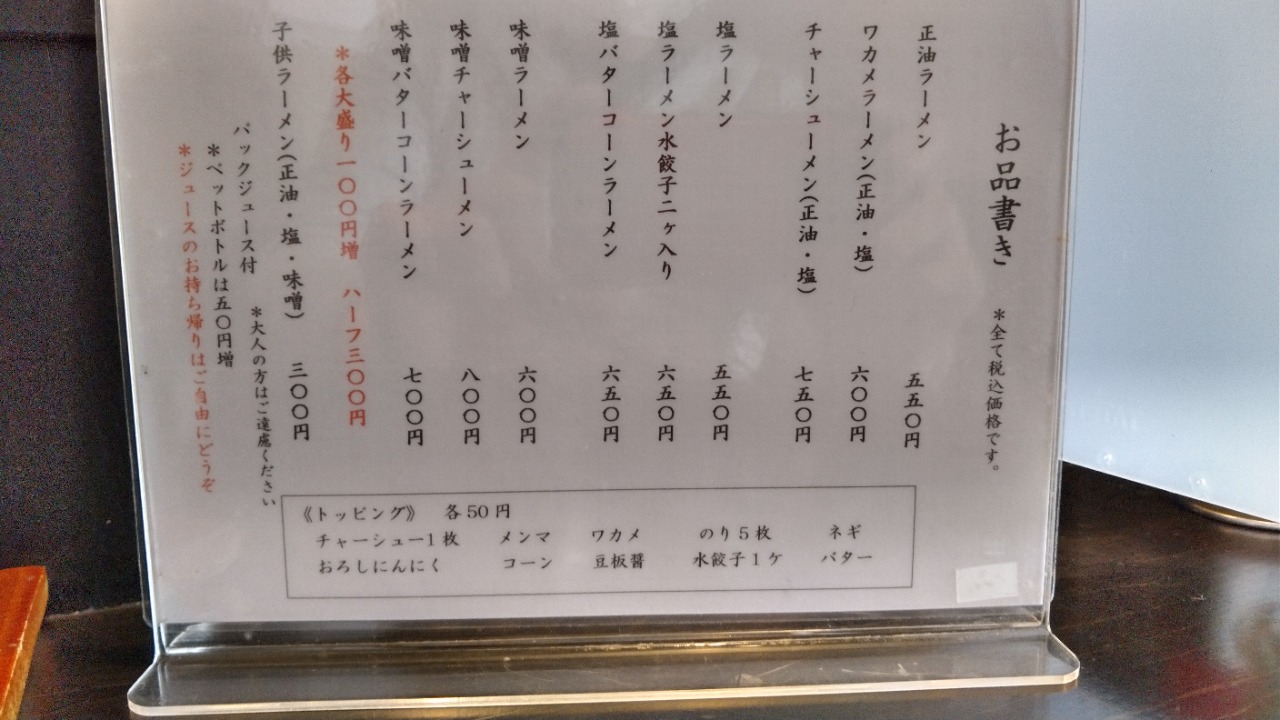 お品書き ＊全て税込価格です。
正油ラーメン 五五〇円
ワカメラーメン(正油・塩) 六〇〇円
チャーシューメン(正油・塩) 七五〇円
塩ラーメン 五五〇円
塩ラーメン水餃子二ヶ入り 六五〇円
塩バターコーンラーメン 六五〇円
味噌ラーメン 六〇〇円
味噌チャーシューメン 八〇〇円
味噌バターコーンラーメン 七〇〇円
＊各大盛り一〇〇円増 ハーフ三〇〇円
子供ラーメン(正油・塩・味噌) 三〇〇円
＊大人の方はご遠慮ください
パックジュース付
＊ペットボトルは五〇円増
＊ジュースのお持ち帰りはご自由にどうぞ
《トッピング》 各50円
チャーシュー1枚 メンマ ワカメ のり5枚 ネギ
おろしにんにく コーン 豆板醤 水餃子1ケ バター